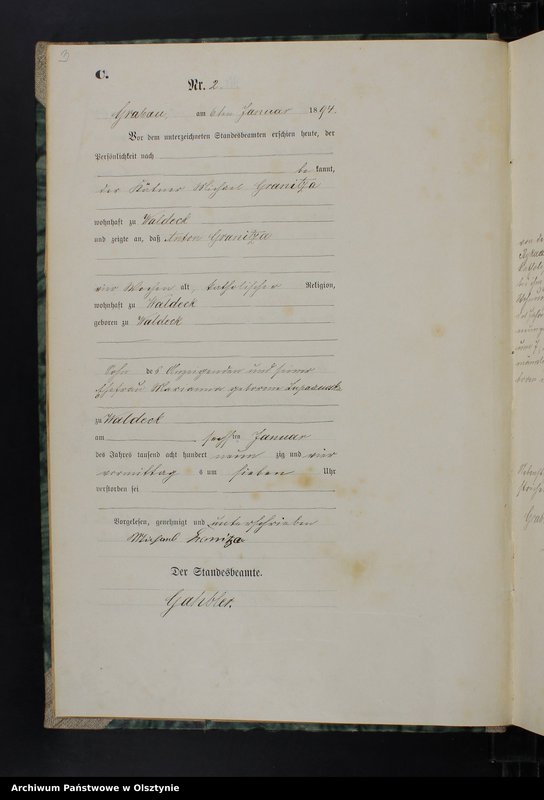 3
C.
Nr. 2.
Grabau, am 6ten Januar 1894.
Vor dem unterzeichneten Standesbeamten erschien heute, der
Persönlichkeit nach
be kannt,
der Kätner Michael Granitza
wohnhaft zu Waldeck
und zeigte an, daß Anton Granitza
vier Wochen alt, katholischer Religion,
wohnhaft zu Waldeck
geboren zu Waldeck
Sohn des Anzeigenden und seiner
Ehefrau Marianna geborene
zu Waldeck
am sechsten Januar
des Jahres tausend acht hundert neun zig und vier
vormittags um sieben Uhr
verstorben sei
Vorgelesen, genehmigt und unterschrieben
Michael
Der Standesbeamte.
Archiwum Państwowe w Olsztynie